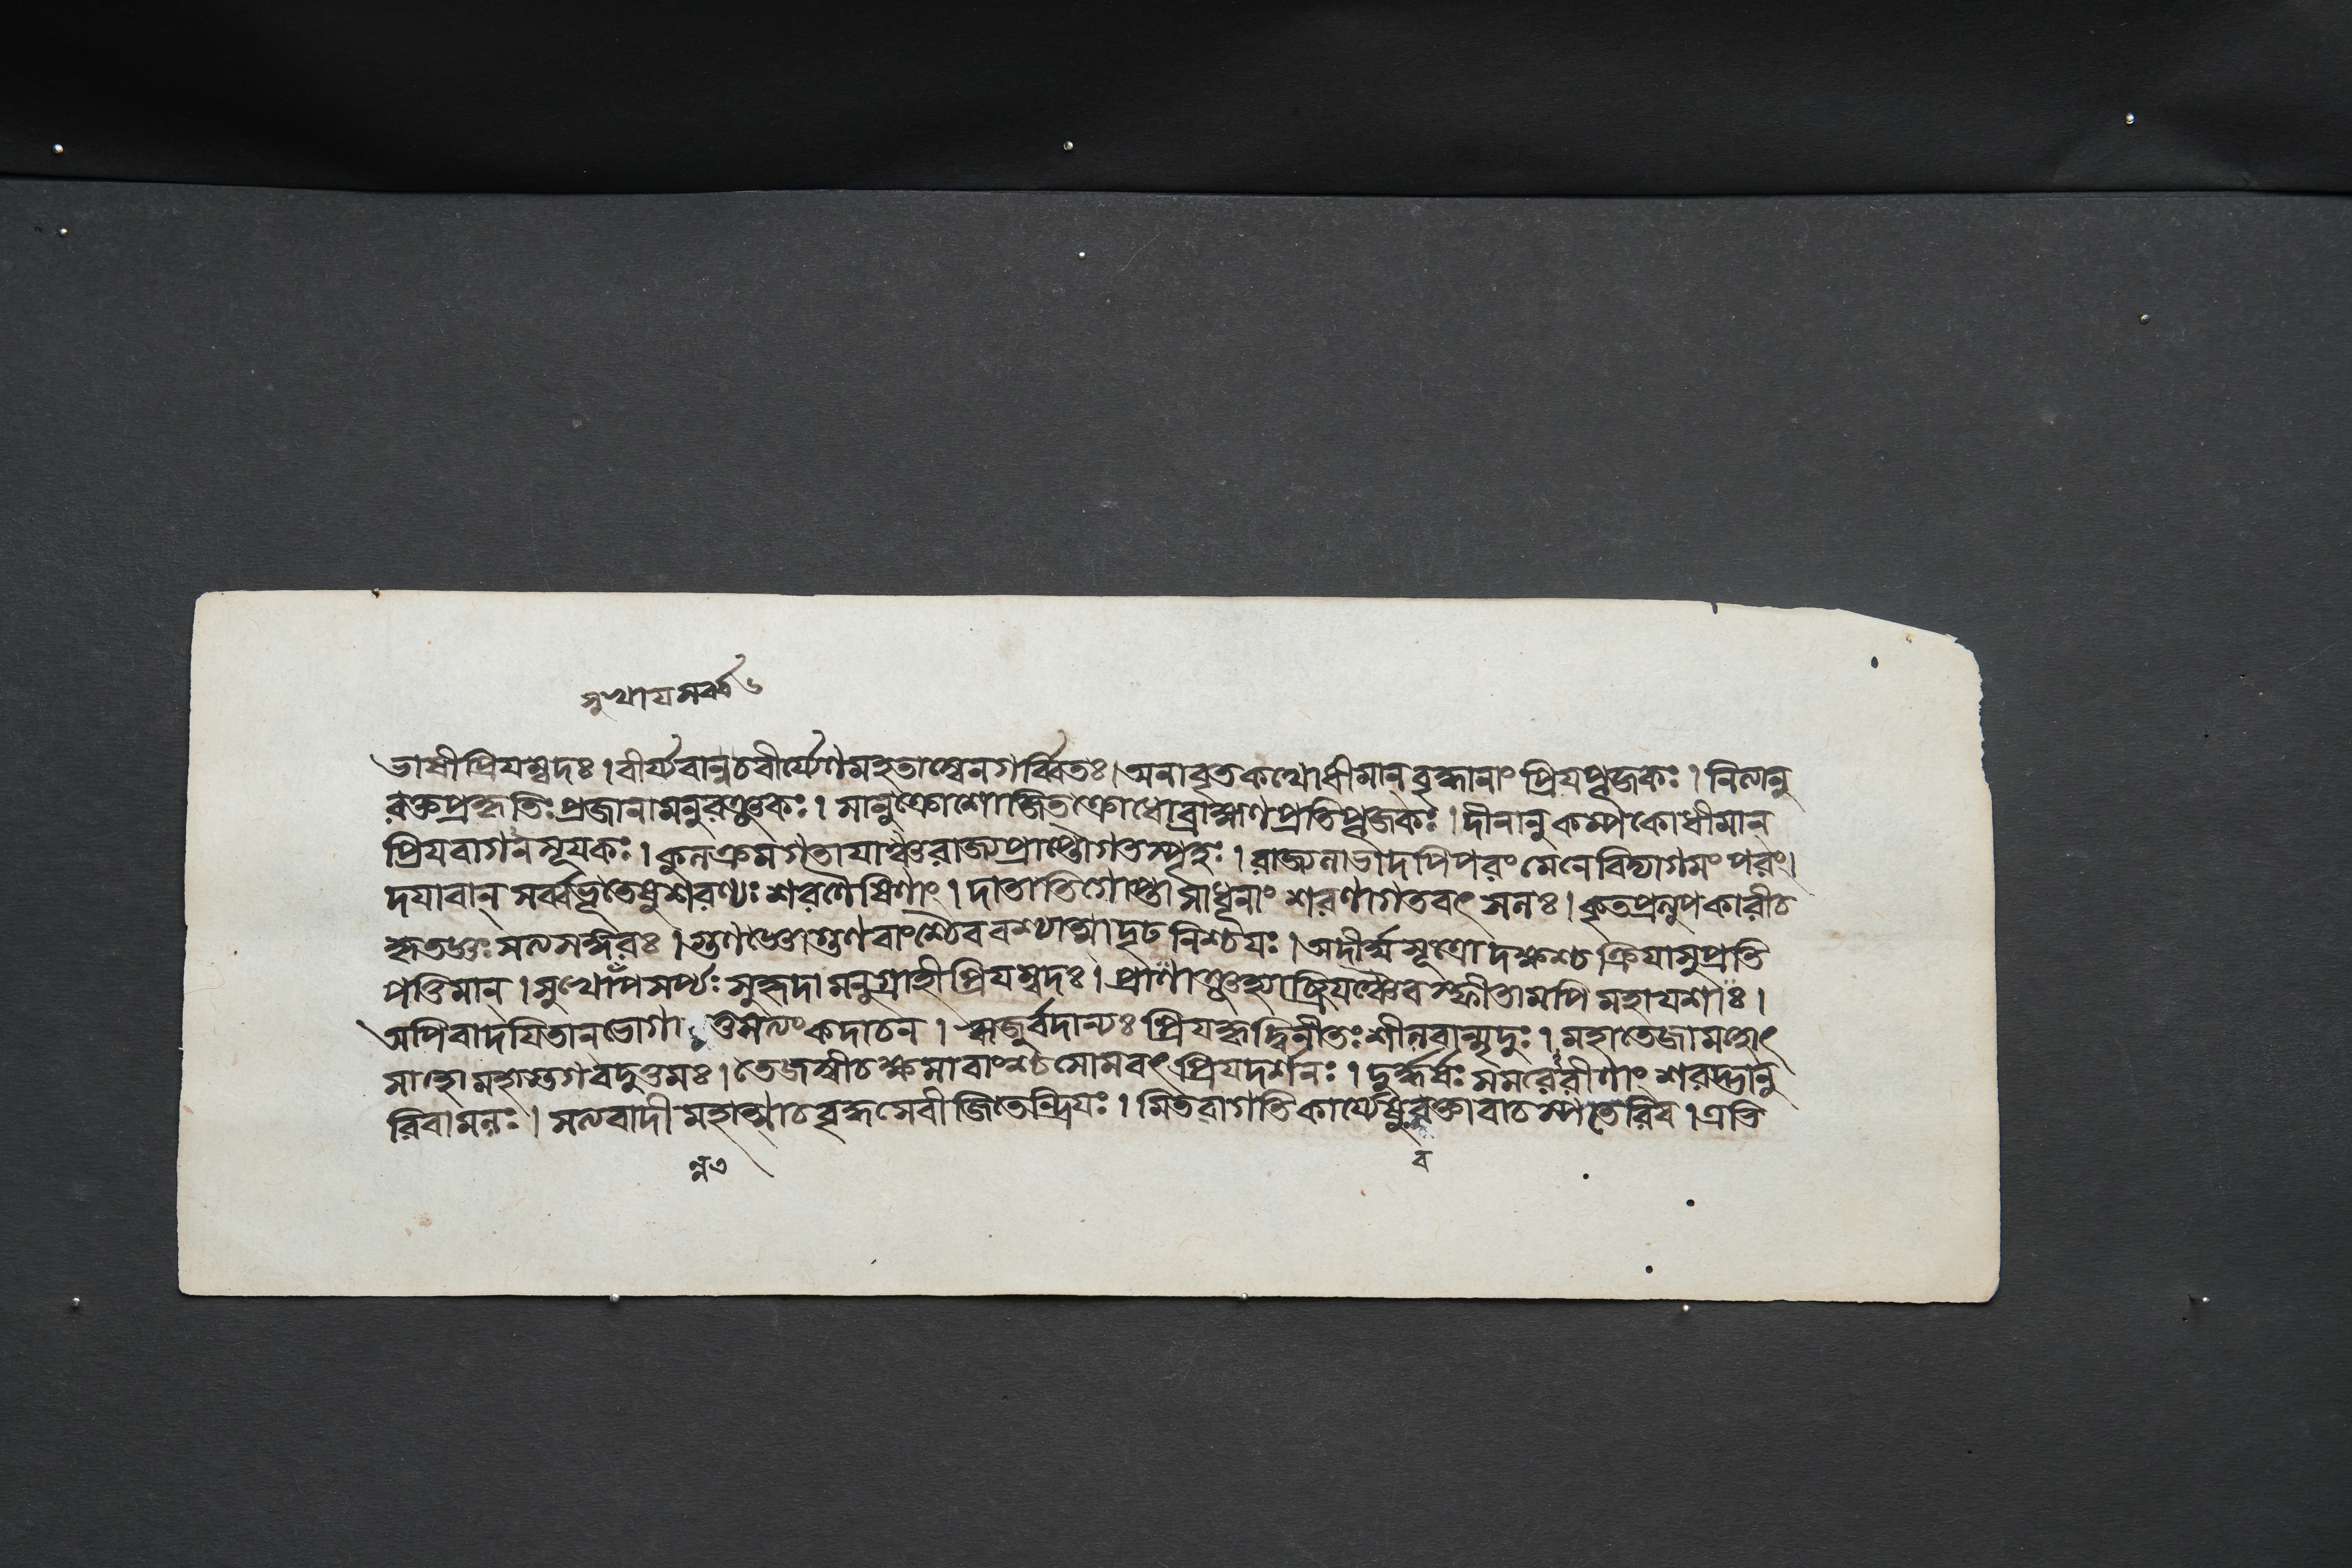 সুখায সর্ব্ব ৬
ভাষী প্রিযম্বদঃ। বীর্য্যবান্ন চ বীর্য্যেণ মহতা স্বেন গর্ব্বিতঃ। অনাবৃত কথো ধীমান্ বৃদ্ধানাং প্রিযপূজকঃ। নিত্যানু
রক্তপ্রকৃতিঃ প্রজানামনুরঞ্জকঃ। সানুক্রোশো জিতক্রোধো ব্রাহ্মণপ্রতিপূজকঃ। দীনানুকম্পকো ধীমান্
প্রিযবাগনসূযকঃ। কুলক্রমগতাযাঞ্চ রাজ্যপ্রাপ্তৌ গতস্পৃহঃ। রাজ্যলাভাদপি পরং মেনে বিদ্যাগমং পরং।
দযাবান্ সর্ব্বভূতেষু শরণ্যঃ শরণৈষিণাং। দাতাভিগোপ্তা সাধূনাং শরণাগতবৎসলঃ। কৃতপ্রত্যুপকারী চ
কৃতজ্ঞঃ সত্যসঙ্গরঃ। গুণজ্ঞো গুণবাংশ্চৈব বশ্যাত্মা দৃঢনিশ্চযঃ। অদীর্ঘসূত্রো দক্ষশ্চ ক্রিযাসু প্রতি
পত্তিমান্। সুখোপসর্প্যঃ সুহৃদামনুগ্রাহী প্রিযম্বদঃ। প্রাণাংশ্চ জহ্যাচ্ছ্রিযঞ্চৈব স্ফীতামপি মহাযশাঃ।
অপি বা দযিতান্ ভোগা তু সত্যং কদাচন। ঋজুর্বদান্যঃ প্রিযকৃদ্বিনীতঃ শীলবান্মৃদুঃ। মহাতেজা মহোৎ
সাহো মহাত্মা গবদুত্তমঃ। তেজস্বী চ ক্ষমাবাংশ্চ সোমবৎ প্রিযদর্শনঃ। দুর্দ্ধর্ষঃ সমরেরীণাং শরদ্ভানু
রিবামলঃ। সত্যবাদী মহাত্মা চ বৃদ্ধসেবী জিতেন্দ্রিযঃ। মিতবাগতি কার্য্যেষু বক্তা বাচস্পতেরিব। এতি
ন্ন ৭
ব